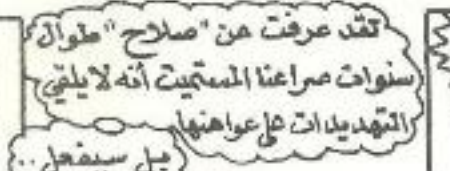 لقد عرفت عن "صلاح" طوال
سنوات صراعنا المستميت أنه لا يلقي
التهديدات على عواهنها
بل سيفعل..